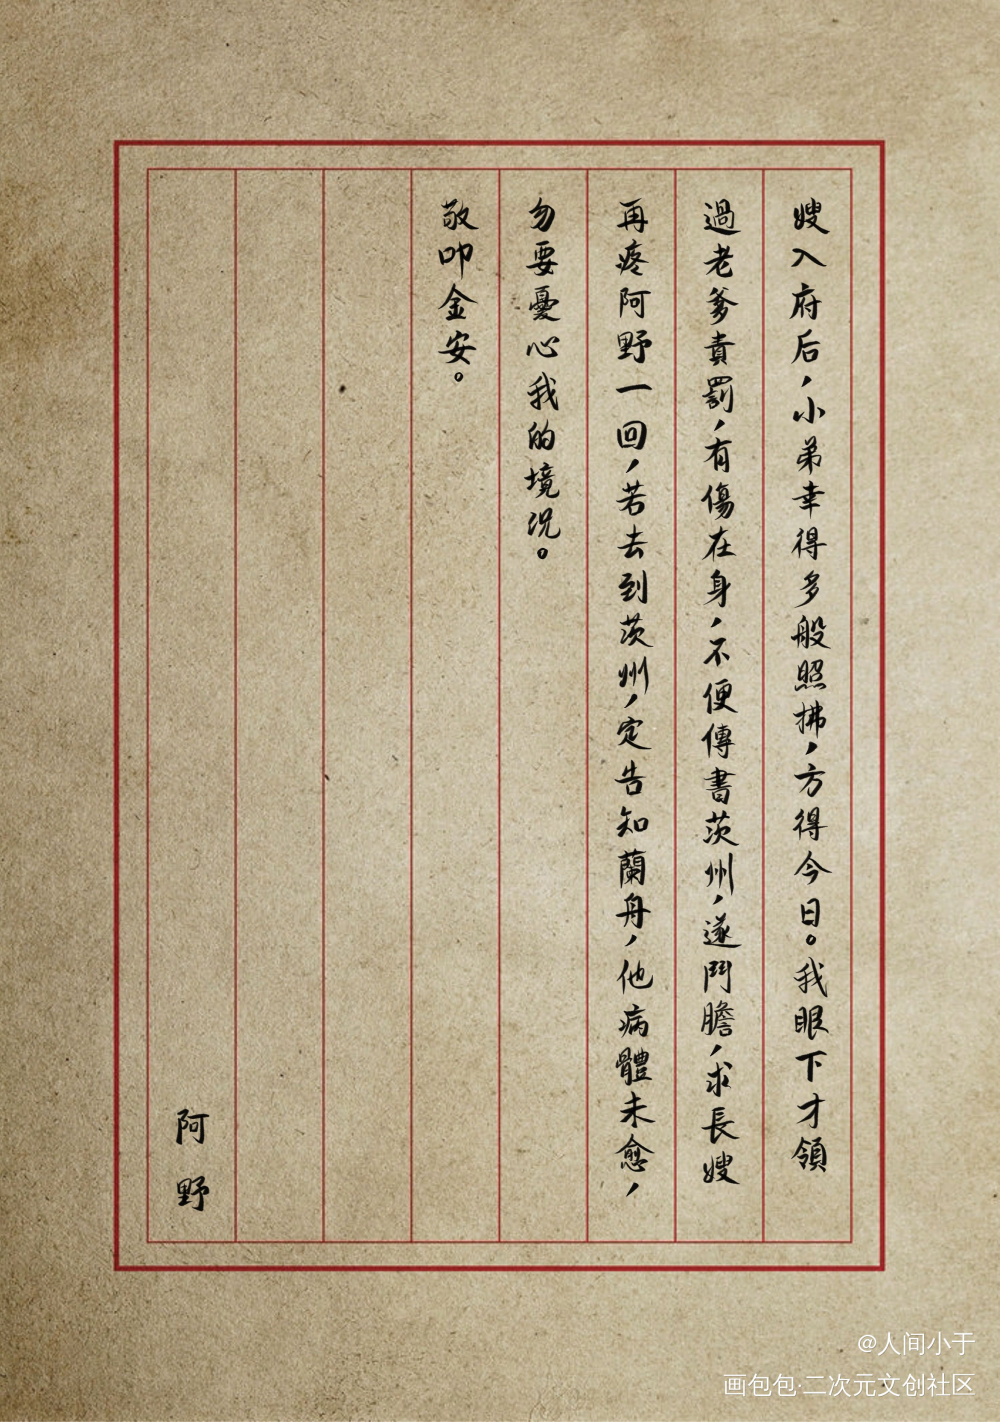 嫂入府后，小弟幸得多般照拂，方得今日。我眼下才領
過老爹責罰，有傷在身，不便傳書茨州，遂鬥膽，求長嫂
再疼阿野一回，若去到茨州，定告知蘭舟，他病體未愈，
勿要憂心我的境况。
敬叩金安。
阿野
@人间小于
画包包·二次元文创社区